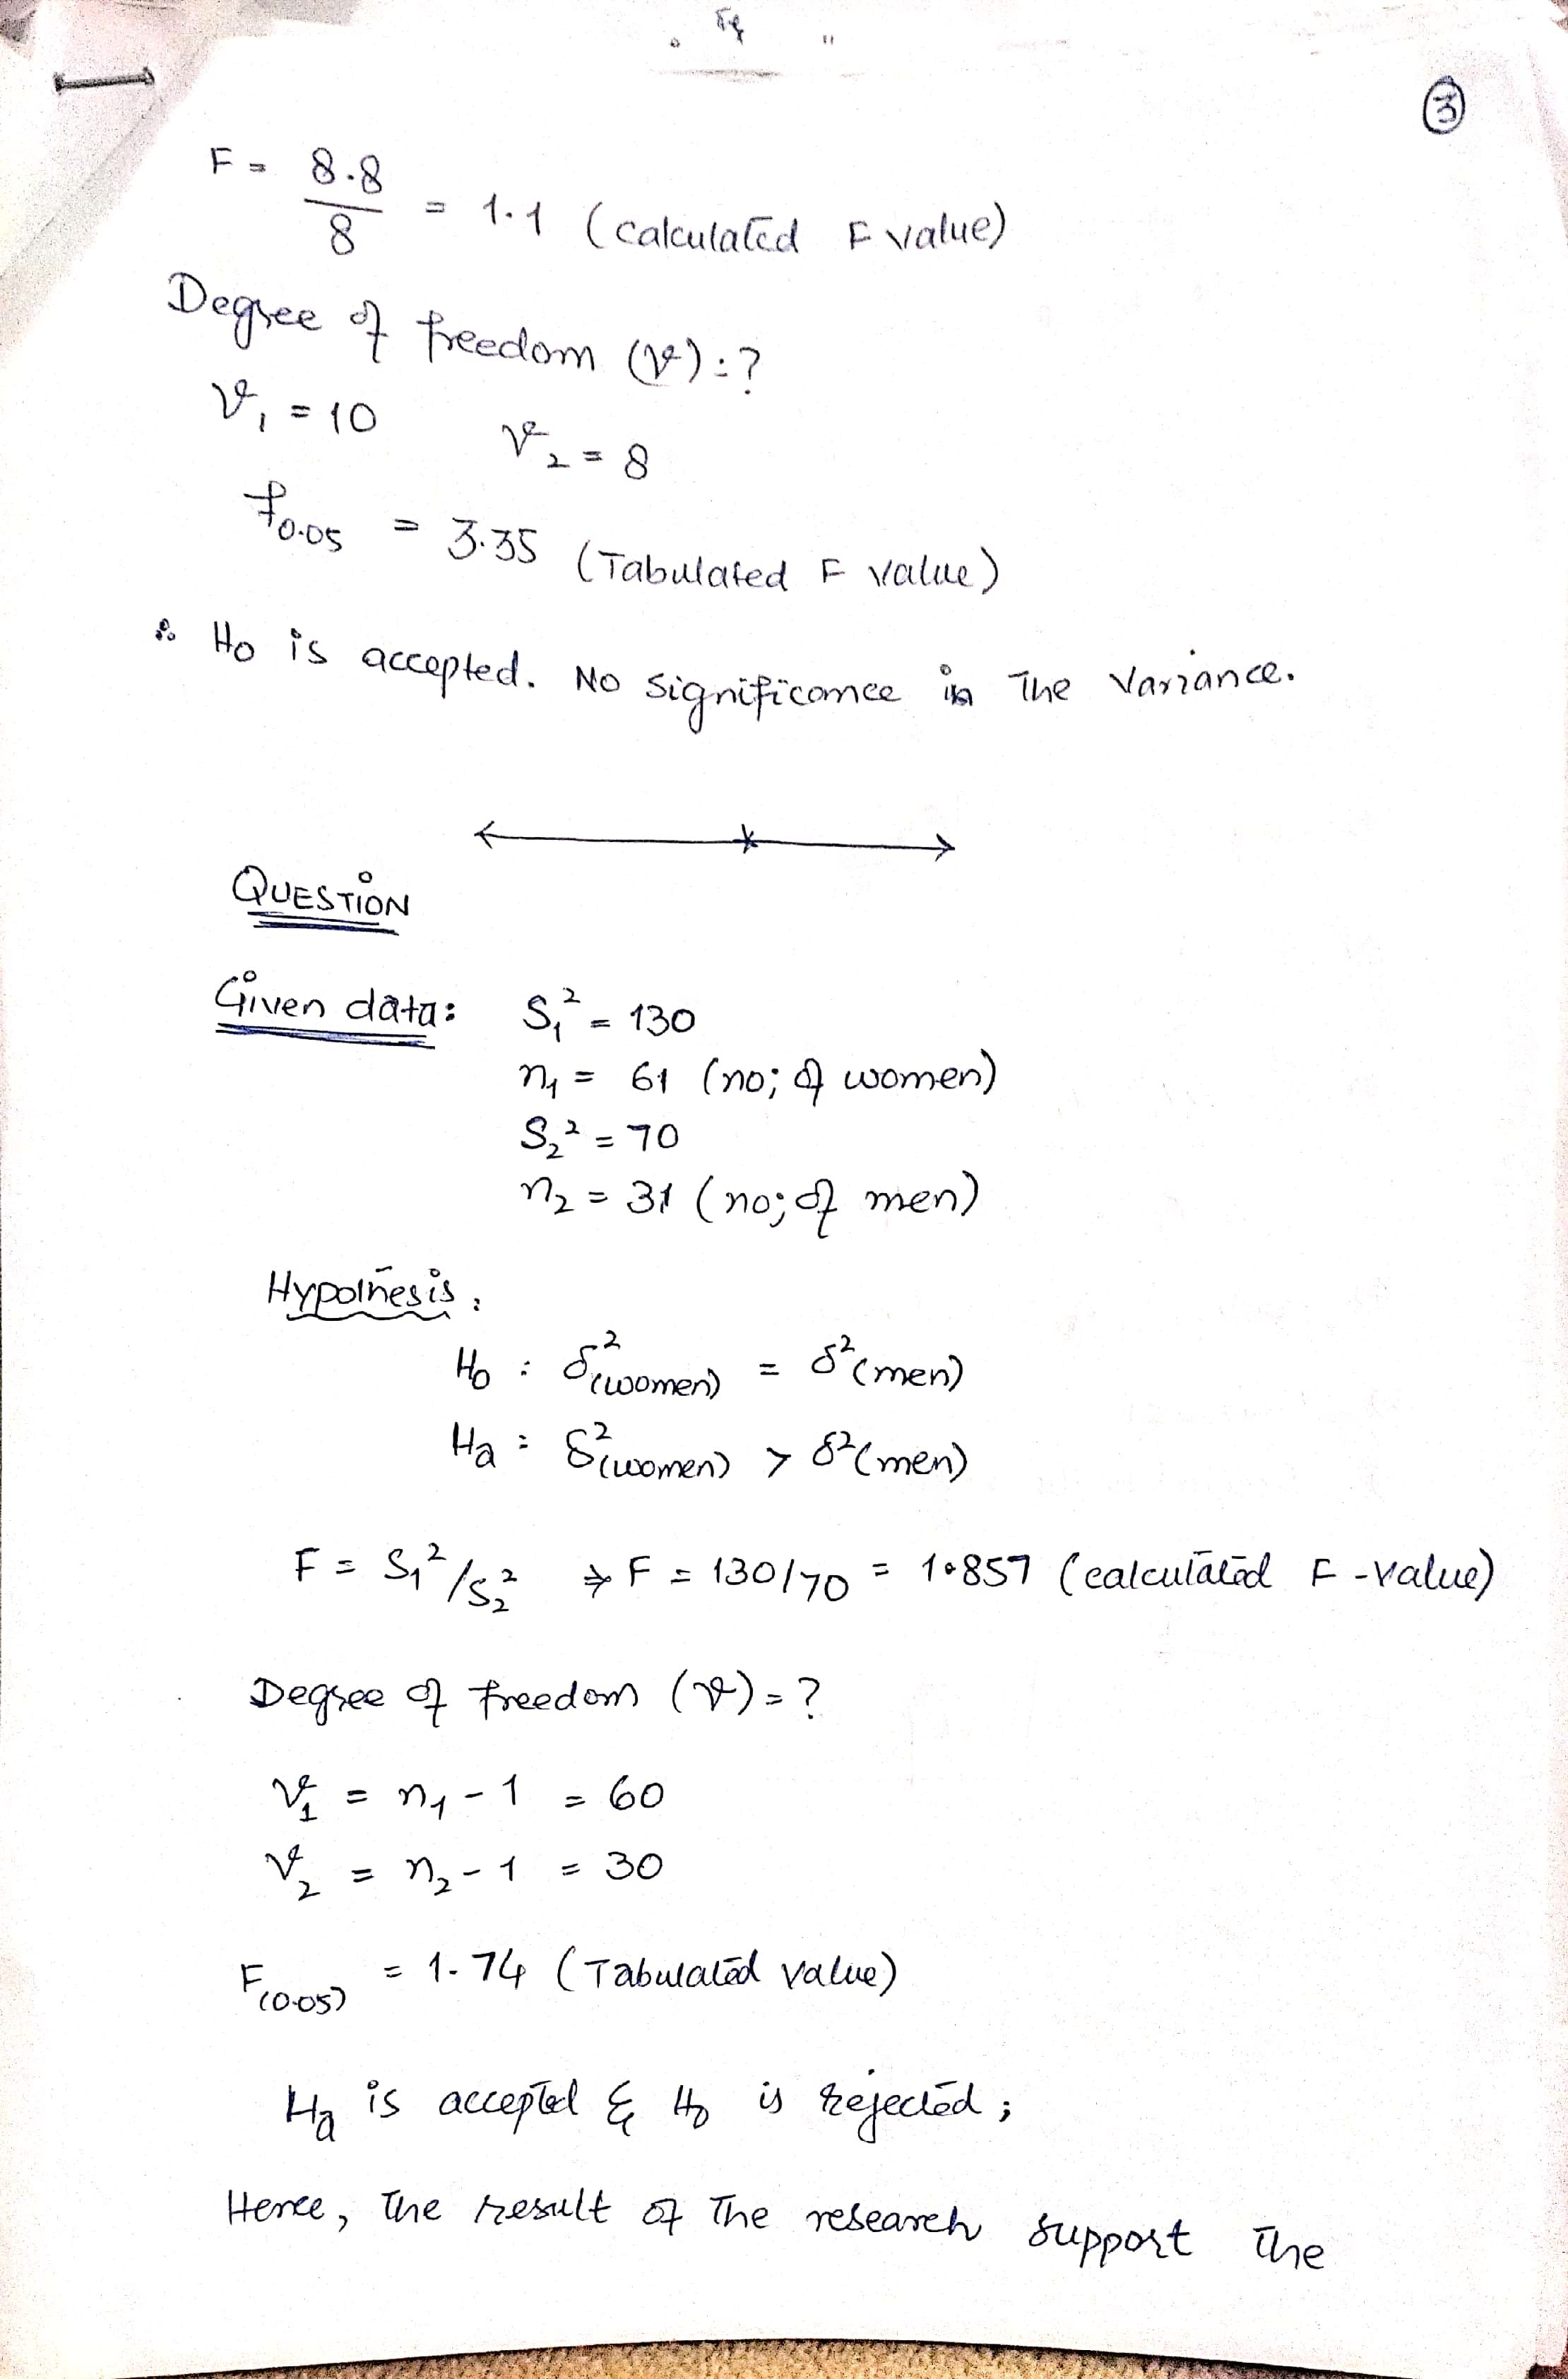 3
F = 8.8 / 8 = 1.1 (calculated F value)
Degree of freedom (ν):?
ν₁ = 10 ν₂ = 8
f0.05 = 3.35 (Tabulated F value)
∴ Ho is accepted. No significance in The Variance.
QUESTION
Given data: S₁² = 130
n₁ = 61 (no; of women)
S₂² = 70
n₂ = 31 (no; of men)
Hypothesis:
Ho : δ²(women) = δ²(men)
Ha : δ²(women) > δ²(men)
F = S₁²/S₂² ⇒ F = 130/70 = 1.857 (calculated F-value)
Degree of freedom (ν) = ?
ν₁ = n₁ - 1 = 60
ν₂ = n₂ - 1 = 30
F(0.05) = 1.74 (Tabulated value)
Ha is accepted & Ho is rejected;
Hence, The result of The research support The